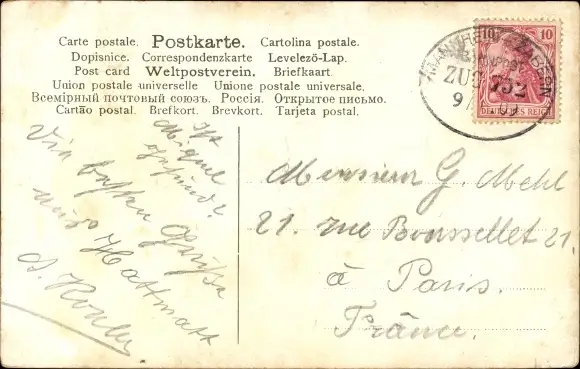 Carte postale. Postkarte. Cartolina postale.
Dopisnice. Correspondenzkarte Levelező-Lap.
Post card Weltpostverein. Briefkaart.
Union postale universelle Unione postale universale.
Всемірный почтовый союзъ. Россія. Открытое письмо.
Cartão postal. Brefkort. Brevkort. Tarjeta postal.
10 10
DEUTSCHES REICH
BAHNPOST
ZUG 752
9/
Ist
Miquel
gesund?
besten Grüße
aus Hattmatt
A.
Monsieur G. Mehl
21. rue Boussellet 21.
à Paris.
France.